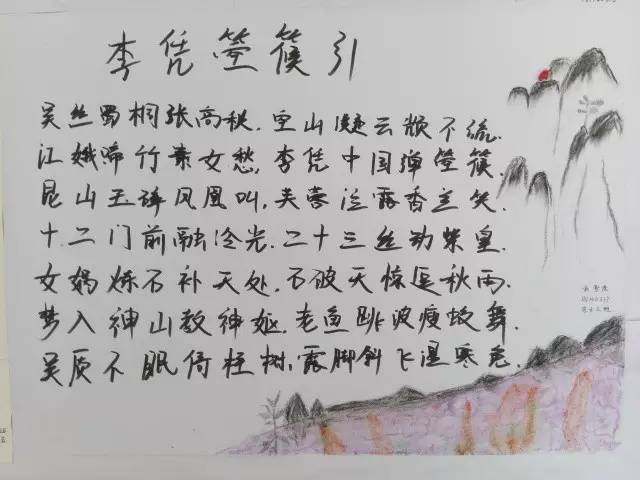 李凭箜篌引
吴丝蜀桐张高秋.空山凝云颓不流.
江娥啼竹素女愁,李凭中国弹箜篌.
昆山玉碎凤凰叫,芙蓉泣露香兰笑.
十二门前融冷光.二十三丝动紫皇.
女娲炼石补天处.石破天惊逗秋雨.
梦入神山教神妪.老鱼跳波瘦蛟舞.
吴质不眠倚桂树.露脚斜飞湿寒兔.